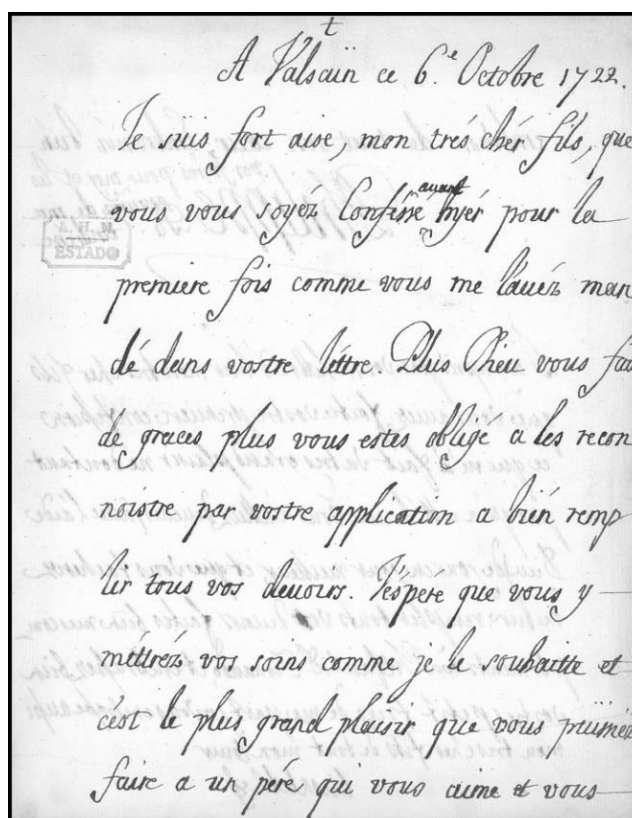 t
A Valsaïn ce 6.e Octobre 1722.
Je suis fort aise, mon trés chér fils, que
vous vous soyéz Confissé avant hyér pour la
A. H. N.
ESTADO
premiere fois comme vous me l'avéz man
dé dans vostre léttre. Plus Dieu vous fai
de graces plus vous estes obligé a les recon
noistre par vostre application a bién remp
lir tous vos devoirs. J'éspere que vous y
méttréz vos soins comme je le souhaitte et
c'est le plus grand plaisir que vous
faire a un peré qui vous aime et vous